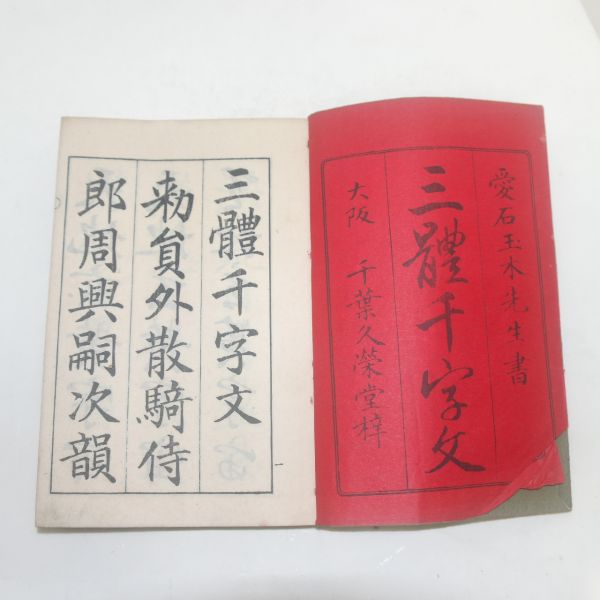 愛石玉木先生書
三體千字文
大阪 千葉久榮堂梓
三體千字文
勅貟外散騎侍
郎周興嗣次韻